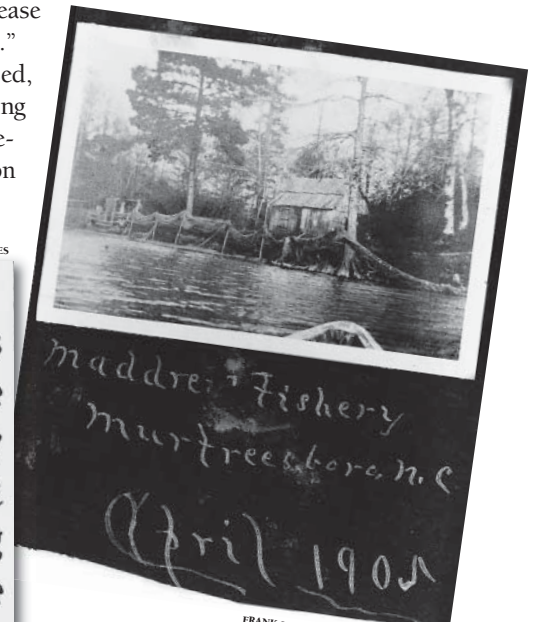 ease
.”
ed,
ng
e-
on
ES
Maddrey Fishery
Murfreesboro, N.C
April 1905
FRANK